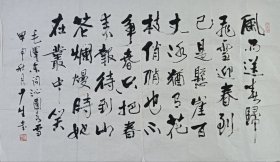 風雨送春歸
飛雪迎春到
已是懸崖百
丈冰猶有花
枝俏俏也不
爭春只把春
来報待到山
花爛熳時她
在叢中笑
毛澤東詞
甲申